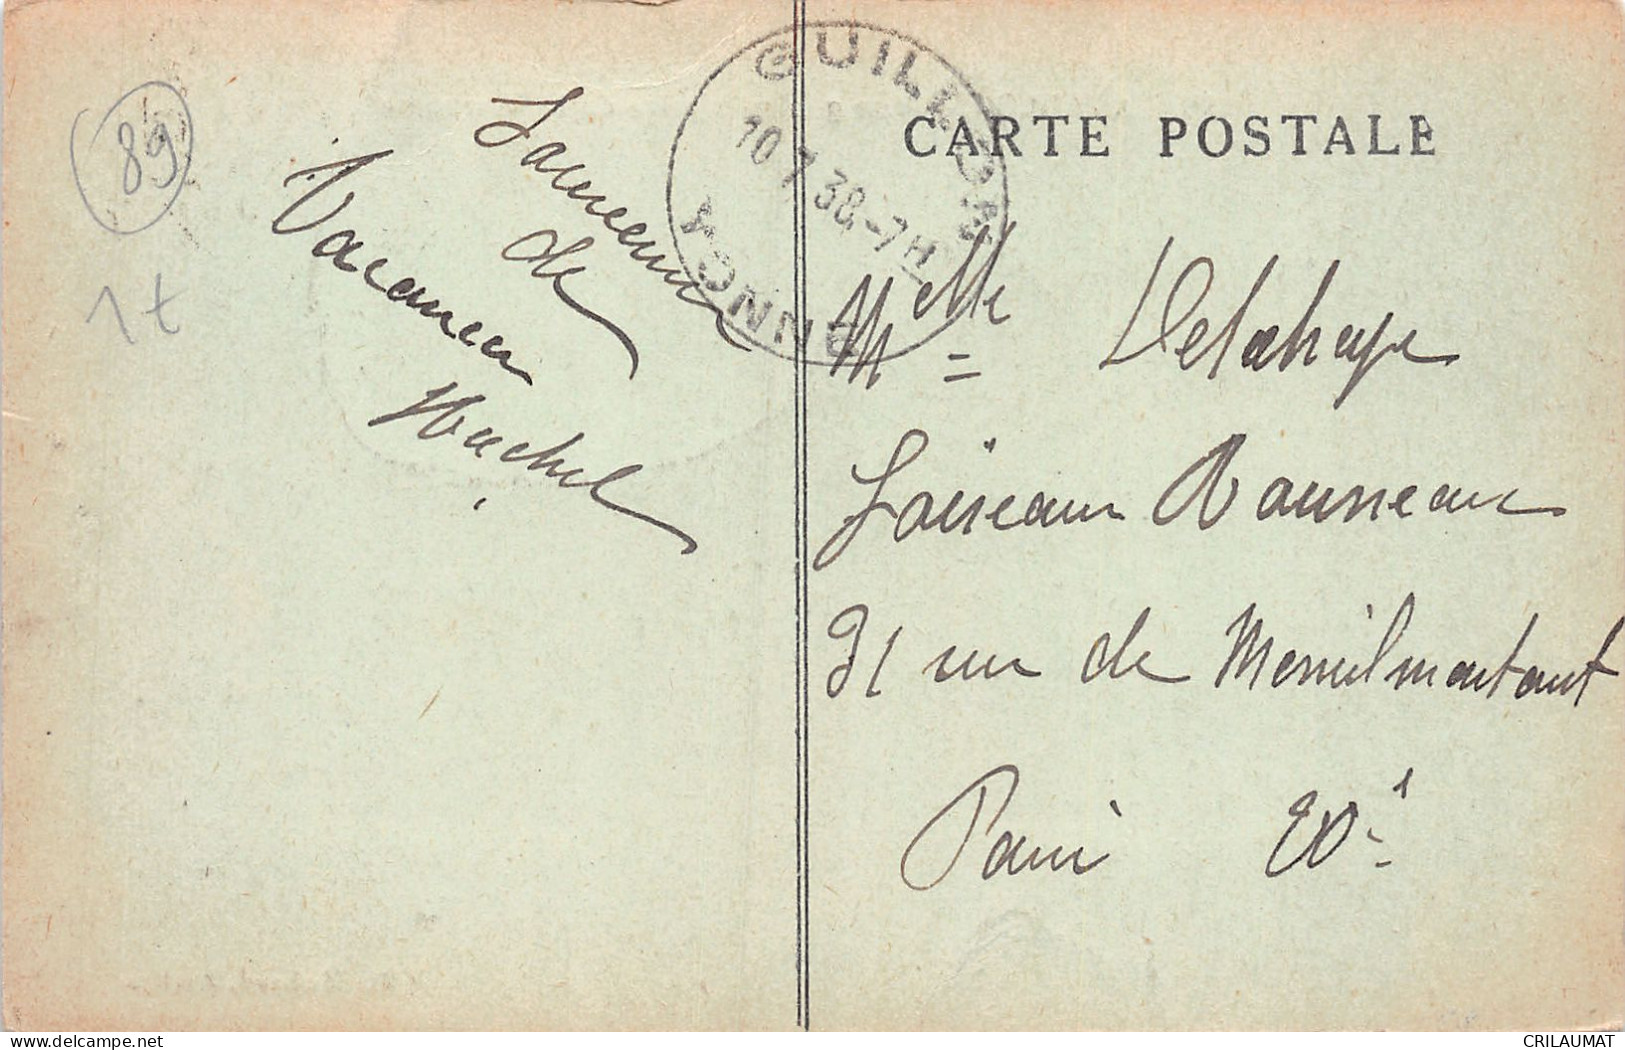 89
1 t
Souvenir
de
Vacances
Rachel
GUILLON
10 7 38.-7H
YONNE
CARTE POSTALE
Melle Delahaye
Loiseau Rousseau
31 rue de Menilmontant
Paris 20e
delcampe.net
CRILAUMAT